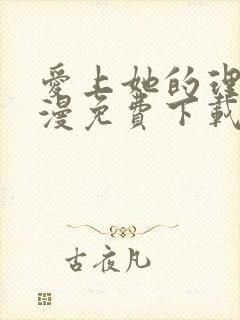 愛上她的理
漫免費下載
古夜凡